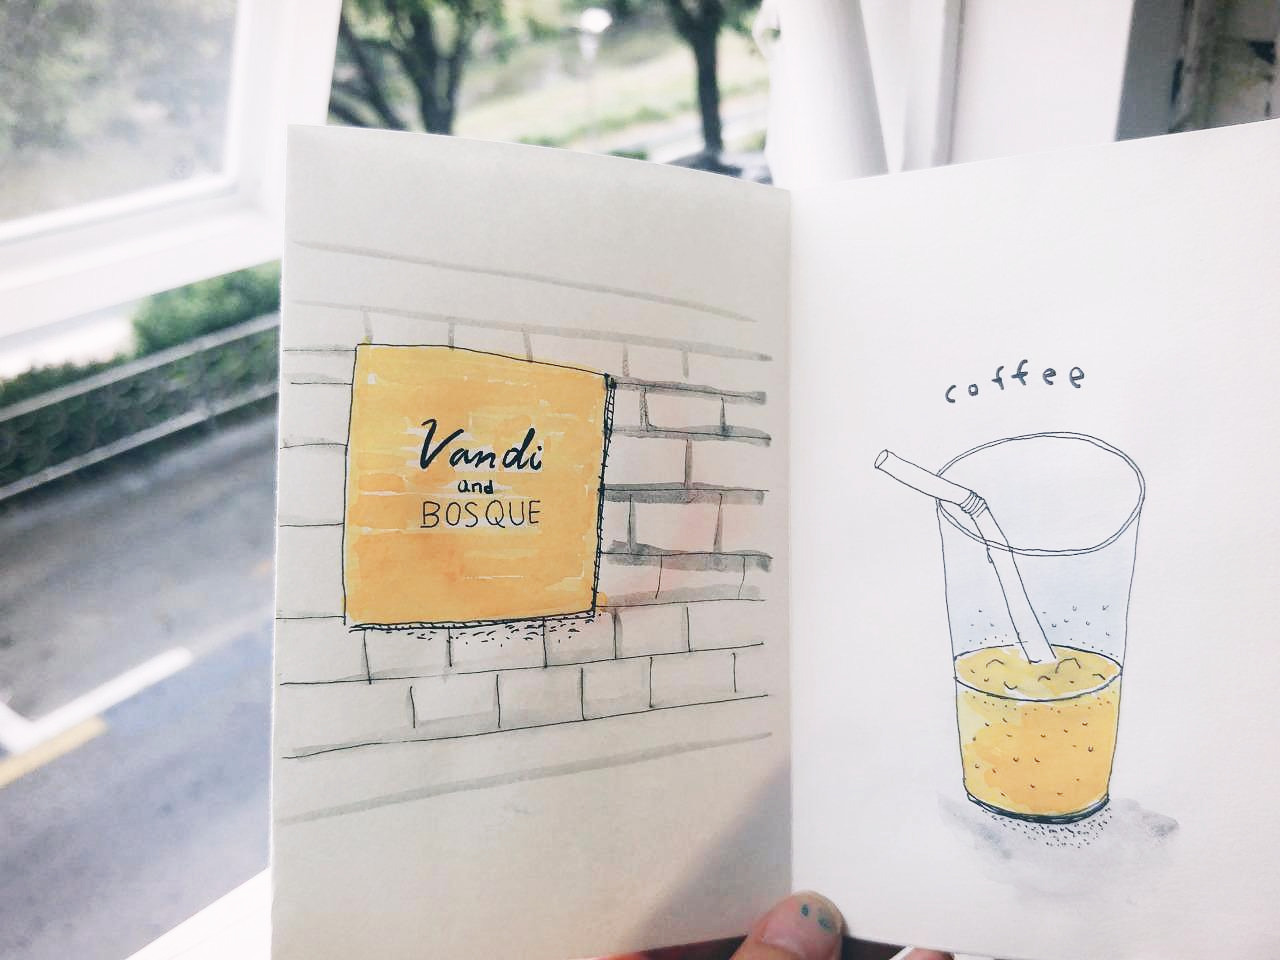 Vandi
and
BOSQUE
coffee